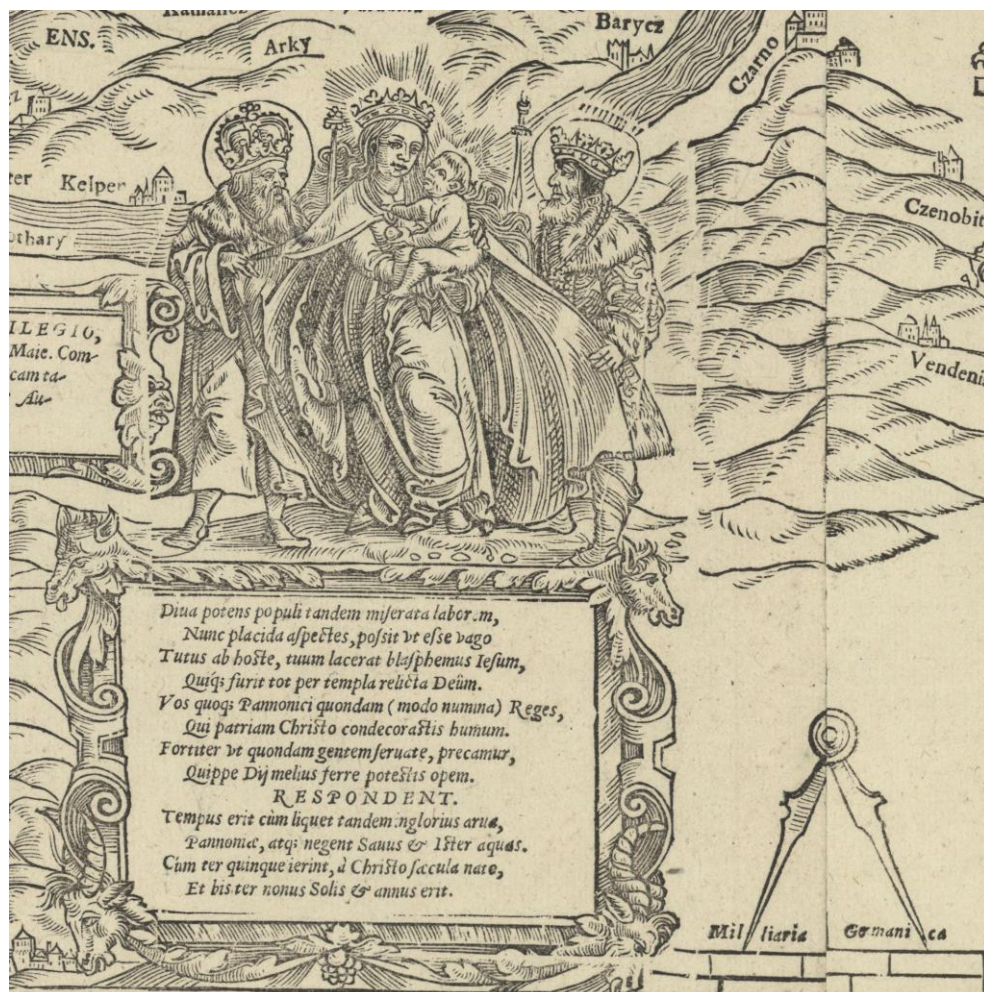 ENS.
Arky
Barycz
Czarno
Kelper
Czenobit
Vendeni
ILEGIO,
Maie. Com-
cam ta-
Au-
Diua potens populi tandem miſerata labor.m,
Nunc placida aſpectes, poſsit vt eſse vago
Tutus ab hoſte, tuum lacerat blaſphemus Ieſum,
Quiq; furit tot per templa relicta Deûm.
Vos quoq; Pannonici quondam (modo numina) Reges,
Qui patriam Chriſto condecoraſtis humum.
Fortiter vt quondam gentem ſeruate, precamur,
Quippe Dij melius ferre poteſtis opem.
RESPONDENT.
Tempus erit cùm liquet tandem inglorius arua,
Pannoniæ, atq; negent Sauus & Iſter aquas.
Cùm ter quinque ierint, à Chriſto ſæcula nato,
Et bis ter nonus Solis & annus erit.
Milliaria Germanica